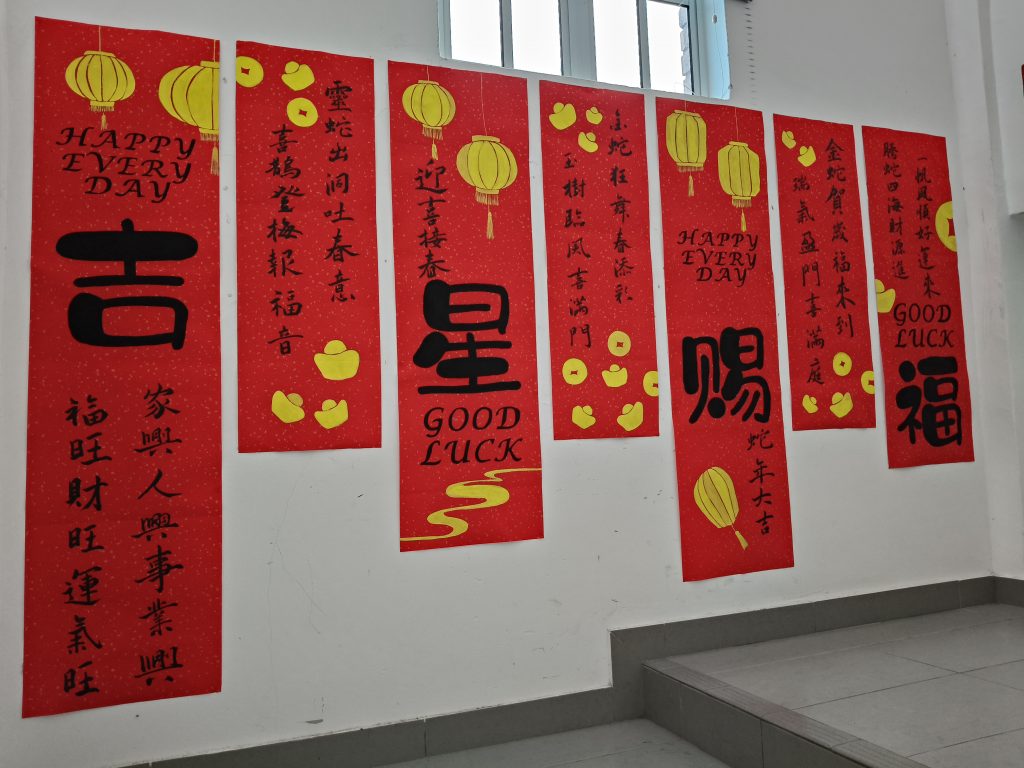 HAPPY
EVERY
DAY
吉
家興人興事業興
福旺財旺運氣旺
靈蛇出洞吐春意
喜鵲登梅報福音
迎喜接春
星
GOOD
LUCK
金蛇狂舞春添彩
玉樹臨風喜滿門
HAPPY
EVERY
DAY
赐
蛇年大吉
金蛇賀歲福來到
瑞氣盈門喜滿庭
一帆風順好運來
騰蛇四海財源進
GOOD
LUCK
福